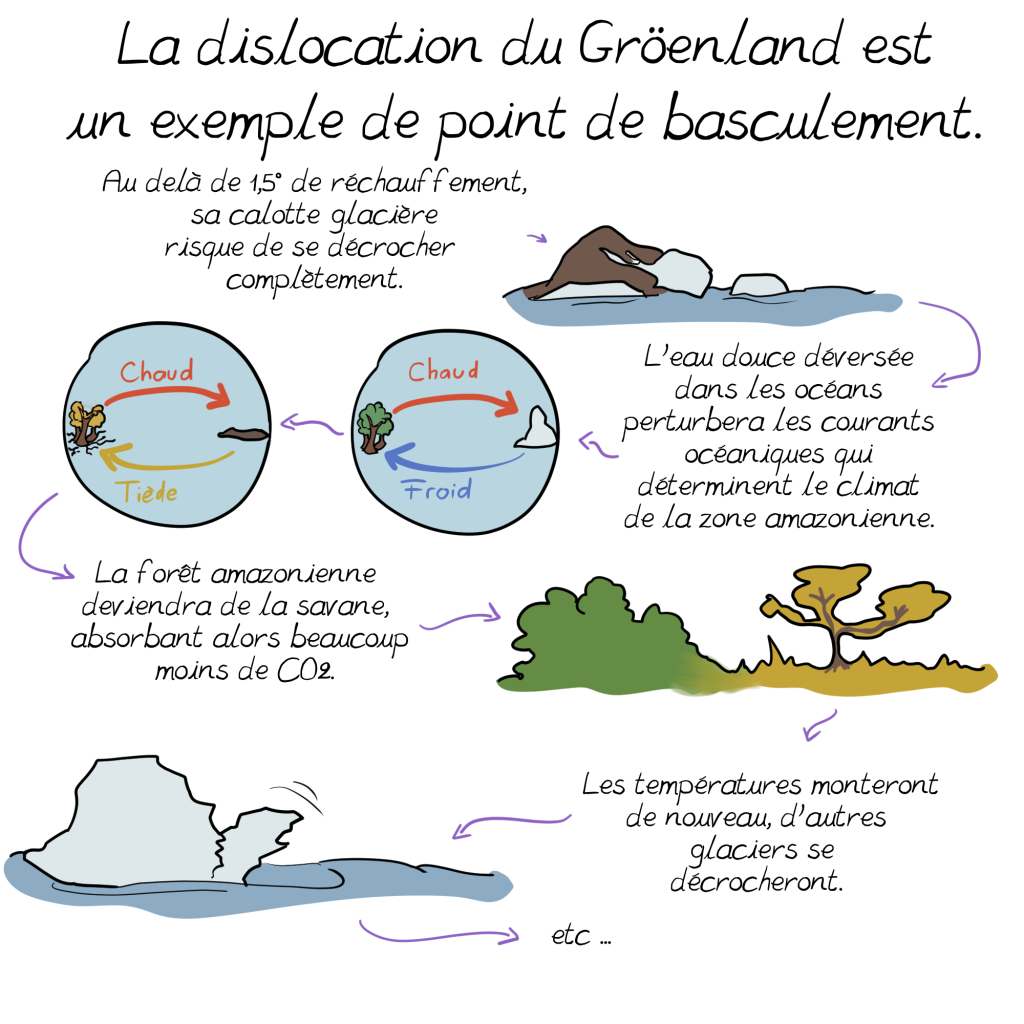 La dislocation du Gröenland est
un exemple de point de basculement.
Au delà de 1,5° de réchauffement,
sa calotte glacière
risque de se décrocher
complètement.
L'eau douce déversée
dans les océans
perturbera les courants
océaniques qui
déterminent le climat
de la zone amazonienne.
Chaud
Froid
Chaud
Tiède
La forêt amazonienne
deviendra de la savane,
absorbant alors beaucoup
moins de CO2.
Les températures monteront
de nouveau, d'autres
glaciers se
décrocheront.
etc ...